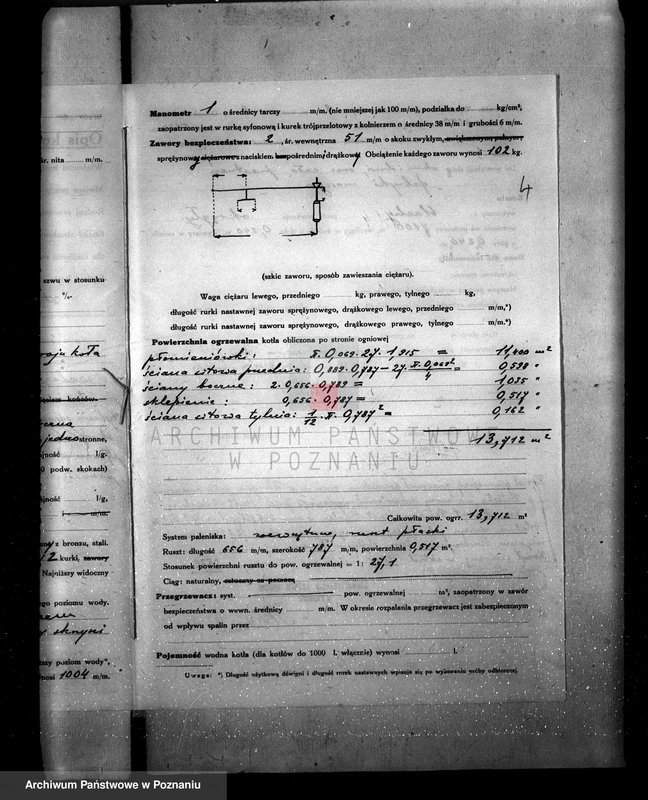 Opis k
śr. nita m/m.
szwu w stosunku
%.
jednostronne,
l/g.
podw. skokach)
l/g,
m/m,
z bronzu, stali.
2 kurki, zawory
Najniższy widoczny
poziomu wody.
poziom wody",
1004 m/m.
Manometr 1 o średnicy tarczy m/m. (nie mniejszej jak 100 m/m), podziałka do kg/cm²,
zaopatrzony jest w rurkę syfonową i kurek trójprzelotowy z kołnierzem o średnicy 38 m/m i grubości 6 m/m.
Zawory bezpieczeństwa: 2, śr. wewnętrzna 51 m/m o skoku zwykłym,
sprężynowy ciężarowe naciskiem bezpośrednim/drążkowy. Obciążenie każdego zaworu wynosi 102 kg.
4
(szkic zaworu, sposób zawieszania ciężaru).
Waga ciężaru lewego, przedniego kg, prawego, tylnego kg,
długość rurki nastawnej zaworu sprężynowego, drążkowego lewego, przedniego m/m,*)
długość rurki nastawnej zaworu sprężynowego, drążkowego prawego, tylnego m/m.*)
Powierzchnia ogrzewalna kotła obliczona po stronie ogniowej
płomieniówki: π. 0,069. 27. 1,915 = 11,400 m²
ściana sitowa przednia: 0,889. 0,787 – 27. π. 0,069²/4 = 0,598 "
ściany boczne: 2. 0,656. 0,789 = 1035 "
sklepienie: 0,656. 0,787 = 0,517 "
ściana sitowa tylnia: 1/12 π. 0,787² = 0,162 "
13,712 m²
ARCHIWUM PAŃSTWOWE
W POZNANIU
Całkowita pow. ogrz. 13,712 m²
System paleniska: wewnętrzne, ruszt płaski
Ruszt: długość 656 m/m, szerokość 787 m/m, powierzchnia 0,517 m².
Stosunek powierzchni rusztu do pow. ogrzewalnej = 1: 27,1
Ciąg: naturalny, sztuczny za pomocą
Przegrzewacz: syst. pow. ogrzewalnej m², zaopatrzony w zawór
bezpieczeństwa o wewn. średnicy m/m. W okresie rozpalania przegrzewacz jest zabezpieczonym
od wpływu spalin przez
Pojemność wodna kotła (dla kotłów do 1000 l. włącznie) wynosi l.
Uwaga: *) Długość użytkową dźwigni i długość rurek nastawnych wpisuje się po wykonaniu próby odbiorczej.
Archiwum Państwowe w Poznaniu